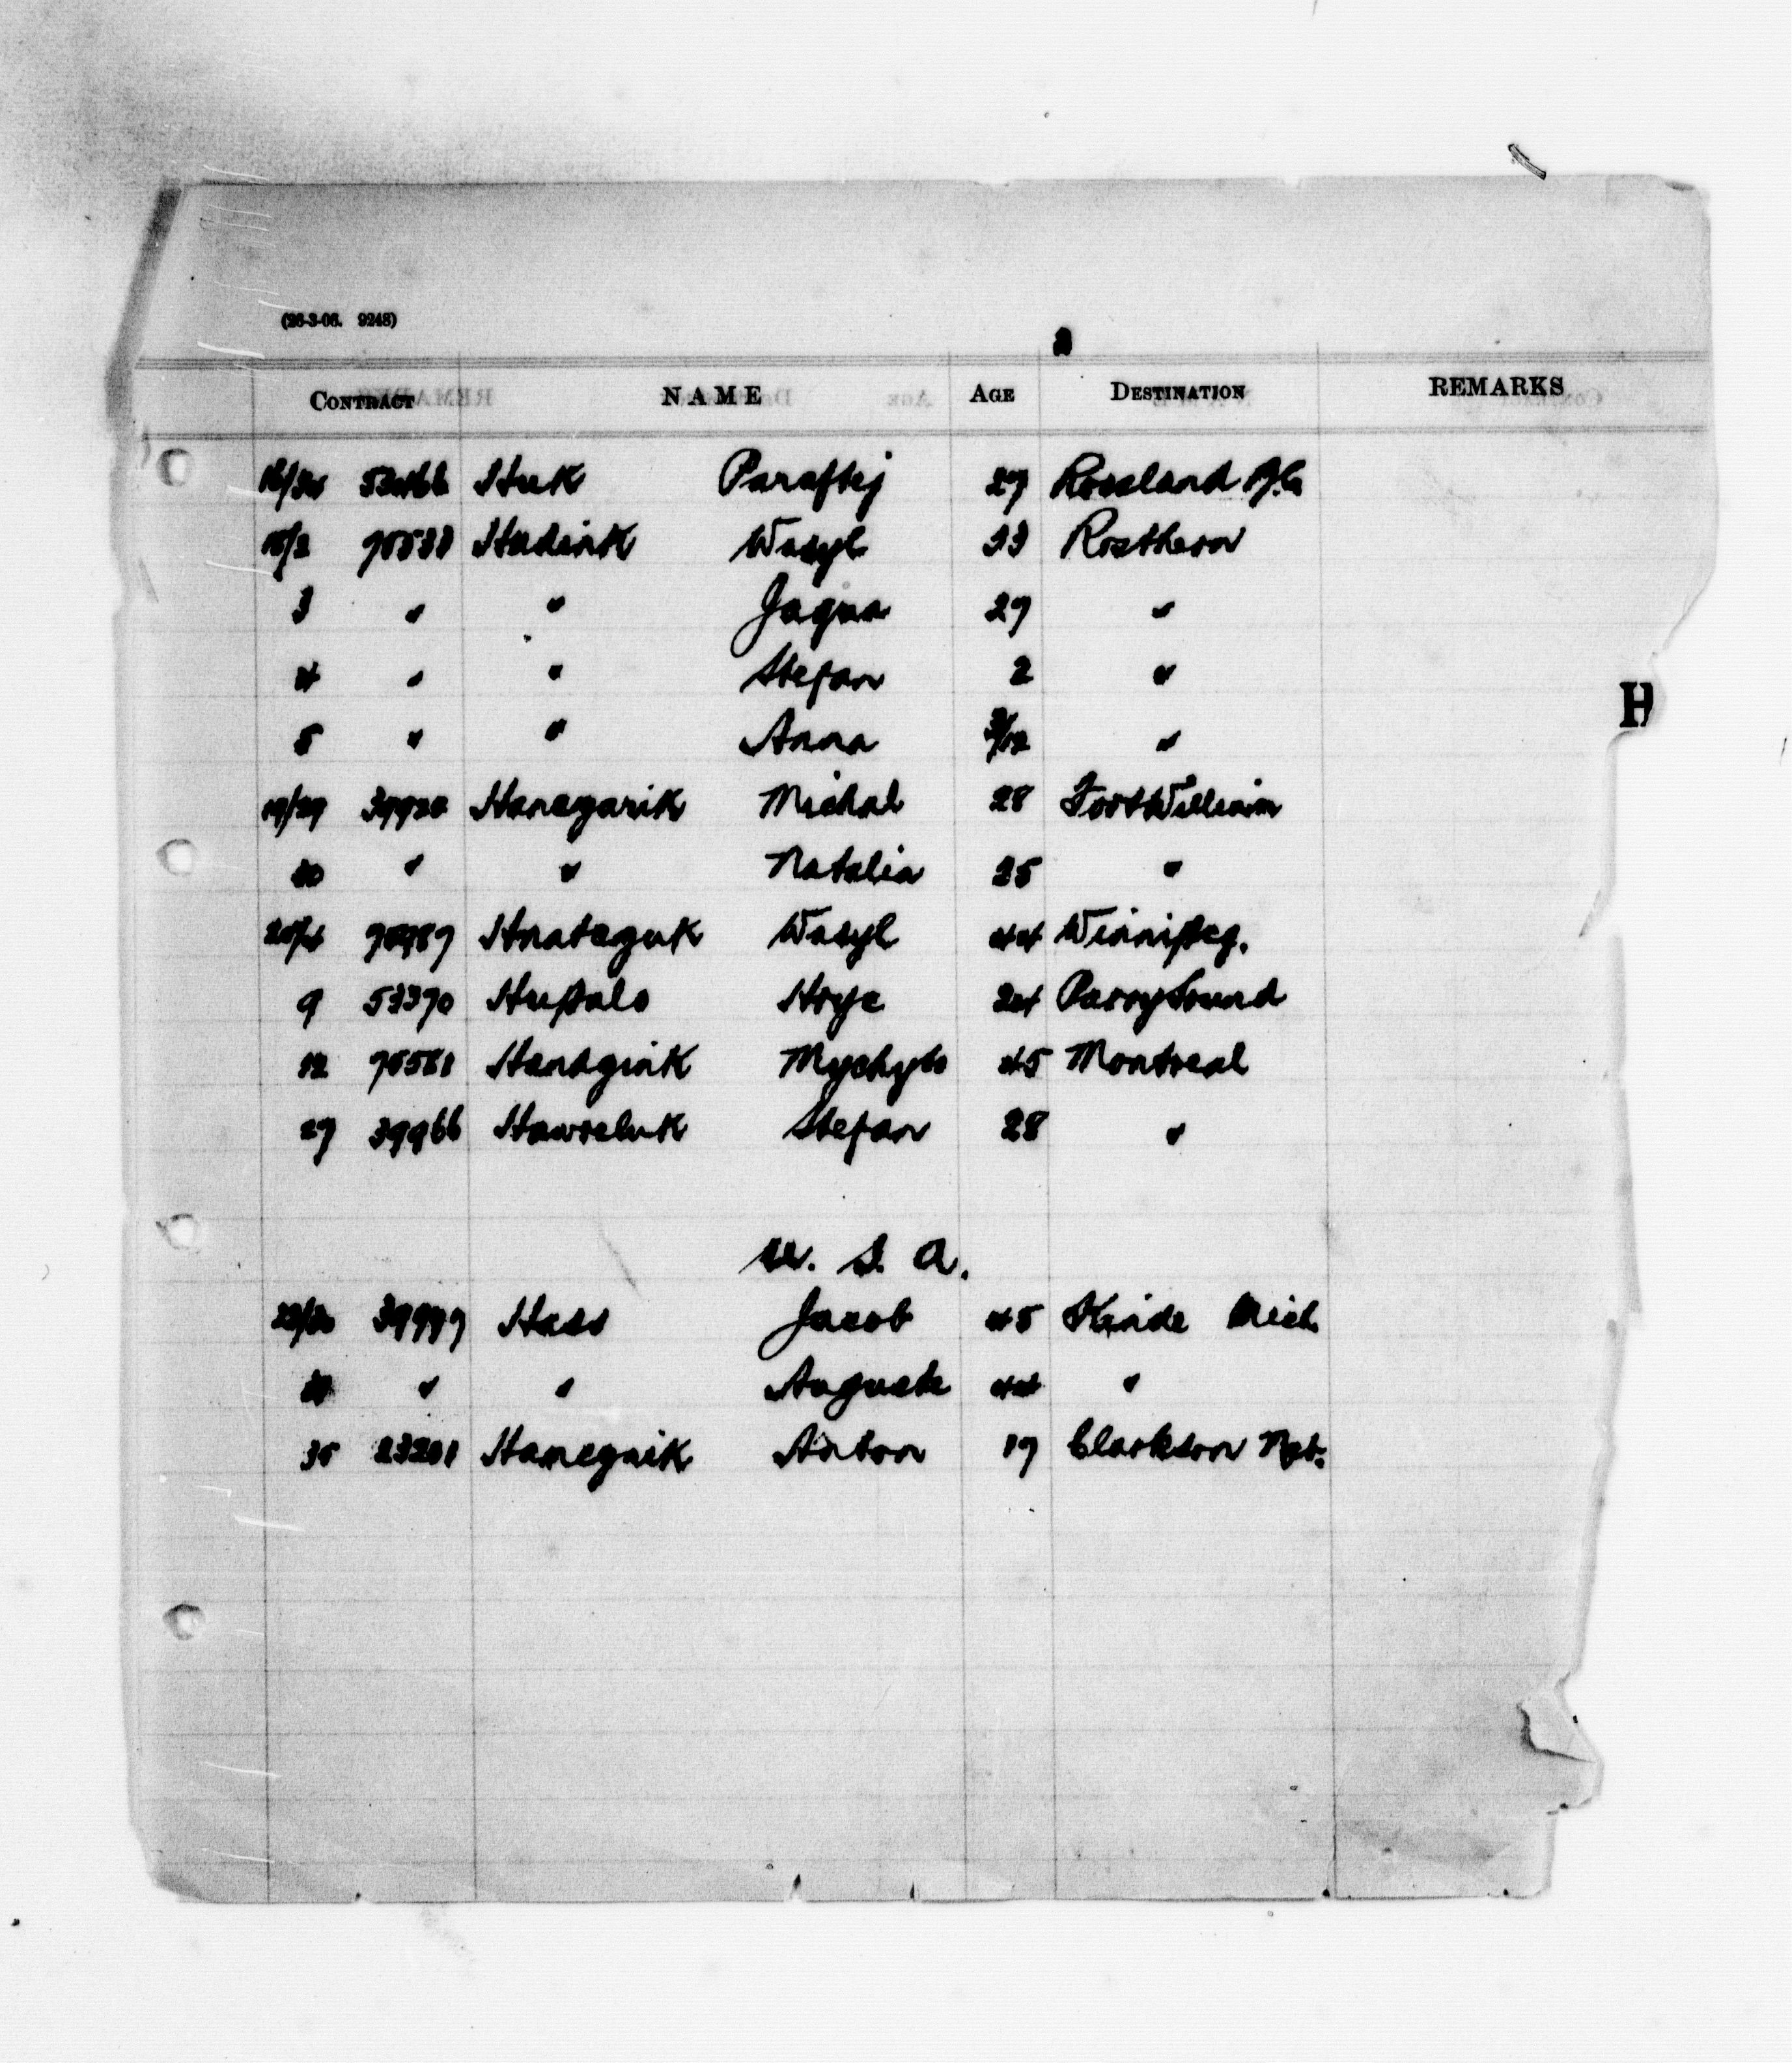 (26-3-06. 9248)
2
CONTRACT NAME AGE DESTINATION REMARKS
Huk Paraftej 27 Rossland B.C.
15/2 70533 Hudink Wasyl 33 Rosthern
3 " " Jagna 29 "
4 " " Stefan 2 "
H
5 " " Anna 3/12 "
19/29 39920 Hanczarik Michal 28 Fort William
30 " " Natalia 25 "
Hnatczuk Wasyl 44 Winnipeg.
9 53370 Hupalo Hryc 24 Parry Sound
12 70581 Mychylo 45 Montreal
27 39966 Hawreluk Stefan 28 "
U. S. A.
39999 Hass Jacob 45 Kinde Mich
" " Auguste 44 "
35 23201 Anton 19 Clarkson Neb.